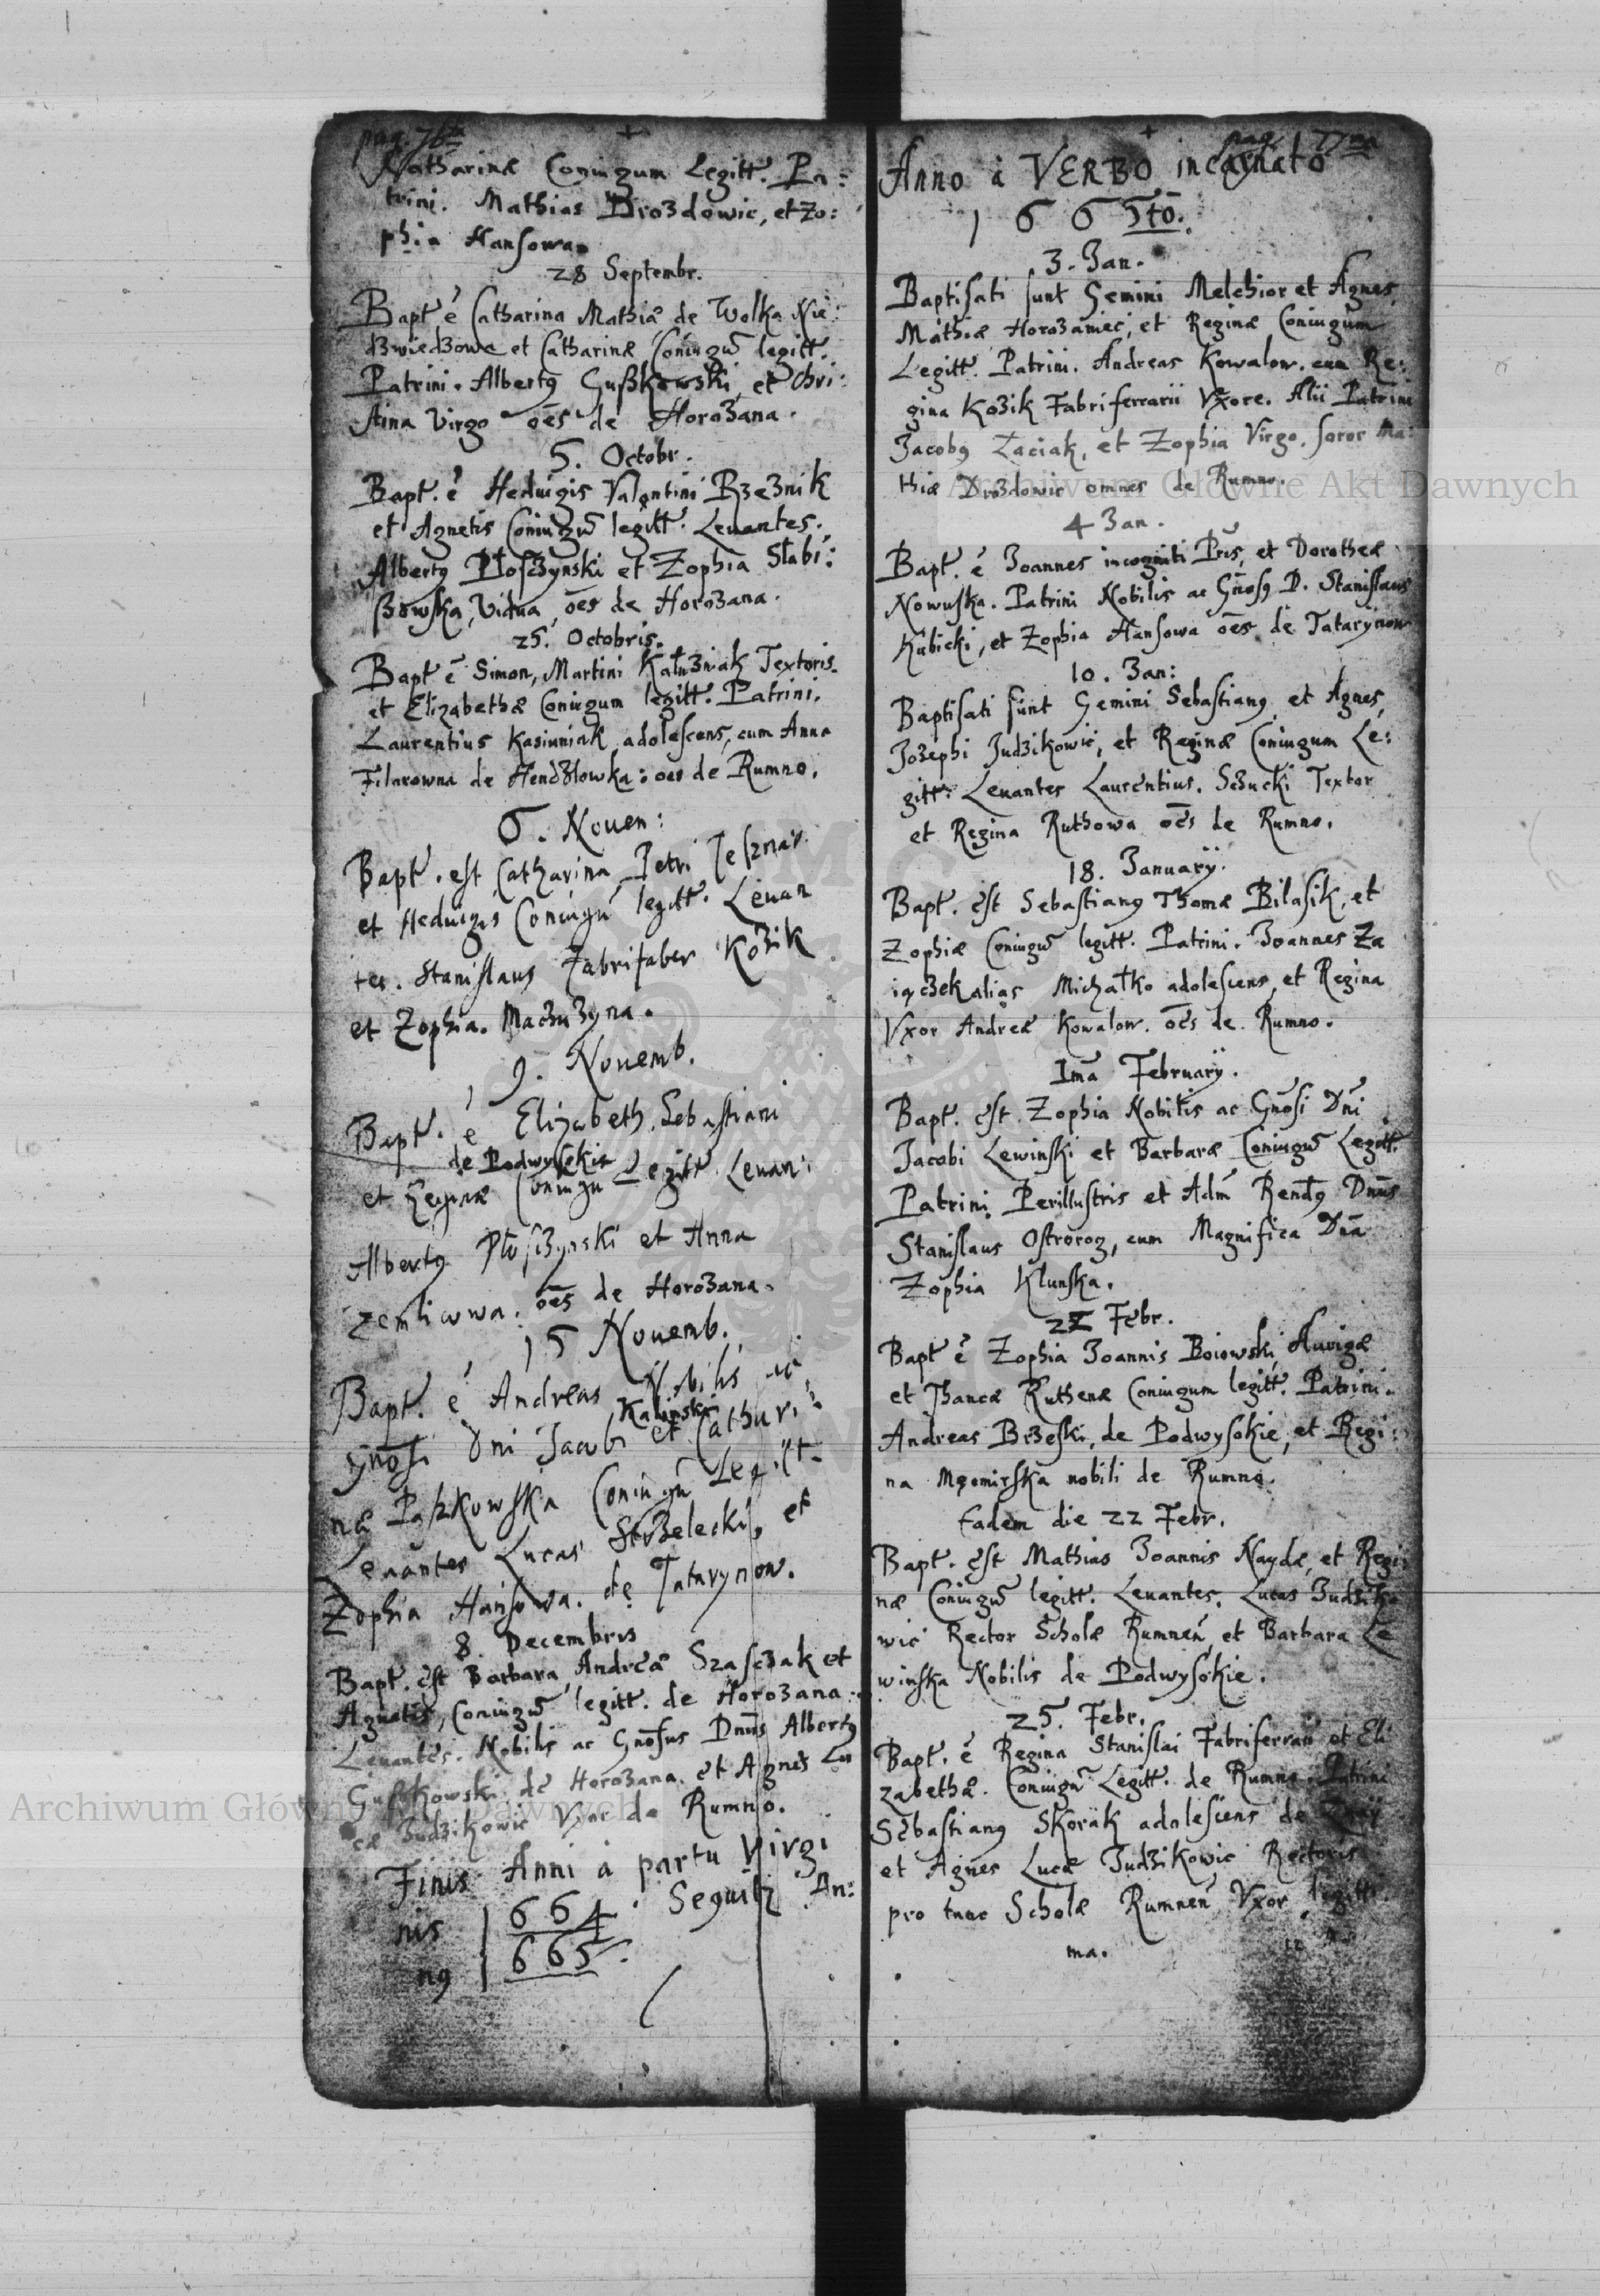 pag. 76ta
+
Catharinæ Coniugum Legitt. Pa:
trini. Mathias Drozdowic, et Zo:
phia Hansowa.
28 Septembr.
Bapt ē Catharina Mathiæ de Wolka Nie:
dzwiedzowa et Catharinæ Coniugū legitt.
Patrini. Albertꝰ Gußkowski, et Chri:
stina Virgo oēs de Horozana.
5. Octobr.
Bapt. ē Heduigis Valentini Rzeznik
et Agnetis Coniugū legitt. Leuantes.
Albertꝰ Płosczynski et Zophia Słabi:
ßowska, Vidua, oēs de Horozana.
25. Octobris.
Bapt ē Simon, Martini Kałuzniak Textoris
et Elizabethæ Coniugum legitt. Patrini.
Laurentius Kasiuniak adolescens, cum Anna
Filarowna de Hendzlowka: oes de Rumno.
6. Nouen:
Bapt. est Catharina Petri
et Heduigis Coniugū legitt. Leuan
tes. Stanislaus Fabrifaber Kozik
et Zophia. Machuzyna.
9. Nouemb.
Bapt. ē Elizabeth, Sebastiani
de Podwysokie
et Reginæ Coniugū Legitt. Leuan:
Albertꝰ Płosczynski et Anna
oēs de Horozana.
15 Nouemb.
Bapt. ē Andreas Nobilis ac
Kalinski
Gnosi Dni Jacobi et Cathari:
næ Paszkowska Coniugū Legitt.
Leuantes Lucas Strzelecki, et
Zophia Hansowa. de Tatarynow.
8. Decembris
Bapt. est Barbara, Andreæ Szasczak et
Agnetis, Coniugū legitt. de Horozana:
Leuantes. Nobilis ac Gnosus Dnus Albertꝰ
Gußkowski de Horozana. et Agnes Lu
cæ Judzikowic Vxor de Rumno.
Finis Anni à partu Virgi
nis 1664. Sequitr An:
nꝰ 1665.
+
pag. 77ma
Anno à VERBO incarnato
1665to.
3. Jan.
Baptisati sunt Gemini Melchior et Agnes,
Mathiæ Horozaniec, et Reginæ Coniugum
Legitt. Patrini. Andreas Kowalow. cum Re:
gina Kozik Fabriferrarii Vxore. Alii Patrini
Jacobꝰ Łaciak, et Zophia Virgo, soror Ma:
thiæ Drozdowic omnes de Rumno.
4 Jan.
Bapt. ē Joannes incogniti Pris, et Dorotheæ
Nowuska. Patrini Nobilis ac Gnosꝰ D. Stanislaus
Kubicki, et Zophia Hansowa oēs de Tatarynow
10. Jan:
Baptisati sunt Gemini Sebastianꝰ, et Agnes,
Jozephi Judzikowic, et Reginæ Coniugum Le:
gitt: Leuantes Laurentius. Sczucki Textor
et Regina Ruthowa oēs de Rumno.
18. Januarÿ.
Bapt. est Sebastianꝰ Thomæ Bilasik, et
Zophiæ Coniugū legitt. Patrini. Joannes Za
iączek alias Michałko adolescens, et Regina
Vxor Andreæ Kowalow. oēs de Rumno.
Ima Februarÿ.
Bapt. est Zophia Nobilis ac Gnosi Dni
Jacobi Lewinski et Barbaræ Coniugū Legitt.
Patrini Perillustris et Adm Rendꝰ Dnus
Stanislaus Ostrorog, cum Magnifica Dna
Zophia Klunska.
22 Febr.
Bapt ē Zophia Joannis Boiowski, Aurigæ
et Thancæ Ruthenæ Coniugum legitt. Patrini.
Andreas Brzeski, de Podwysokie, et Regi:
na Męcinska nobili de Rumno.
Eadem die 22 Febr.
Bapt. est Mathias Joannis Naydæ, et Regi:
næ Coniugū legitt. Leuantes. Lucas Judziko
wic Rector Scholæ Rumnen, et Barbara Le
winska Nobilis de Podwysokie.
25. Febr.
Bapt. ē Regina Stanislai Fabriferrarii et Eli
zabethæ. Coniugū Legitt. de Rumno. Patrini
Sebastianꝰ Skorak adolescens de
et Agnes Lucæ Judzikowic Rectoris
pro tunc Scholæ Rumnen Vxor legitti
ma.
Archiwum Główne Akt Dawnych
Archiwum Główne Akt Dawnych